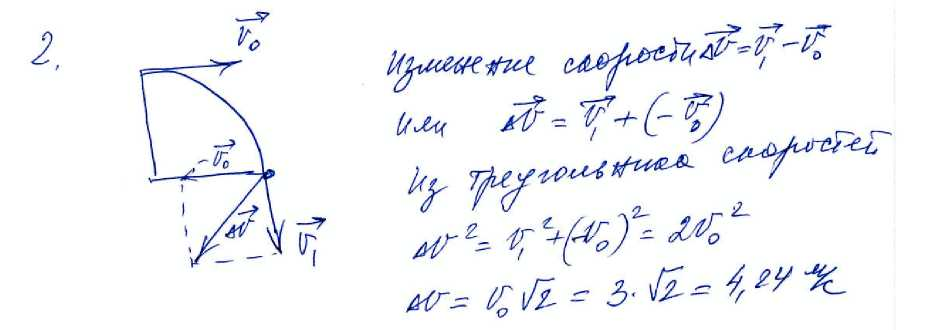 2.
v⃗₀
Изменение скорости Δv⃗ = v⃗₁ - v⃗₀
или Δv⃗ = v⃗₁ + (-v⃗₀)
Из треугольника скоростей
Δv² = v₁² + (-v₀)² = 2v₀²
Δv = v₀√2 = 3·√2 = 4,24 м/с
-v⃗₀
Δv⃗
v⃗₁